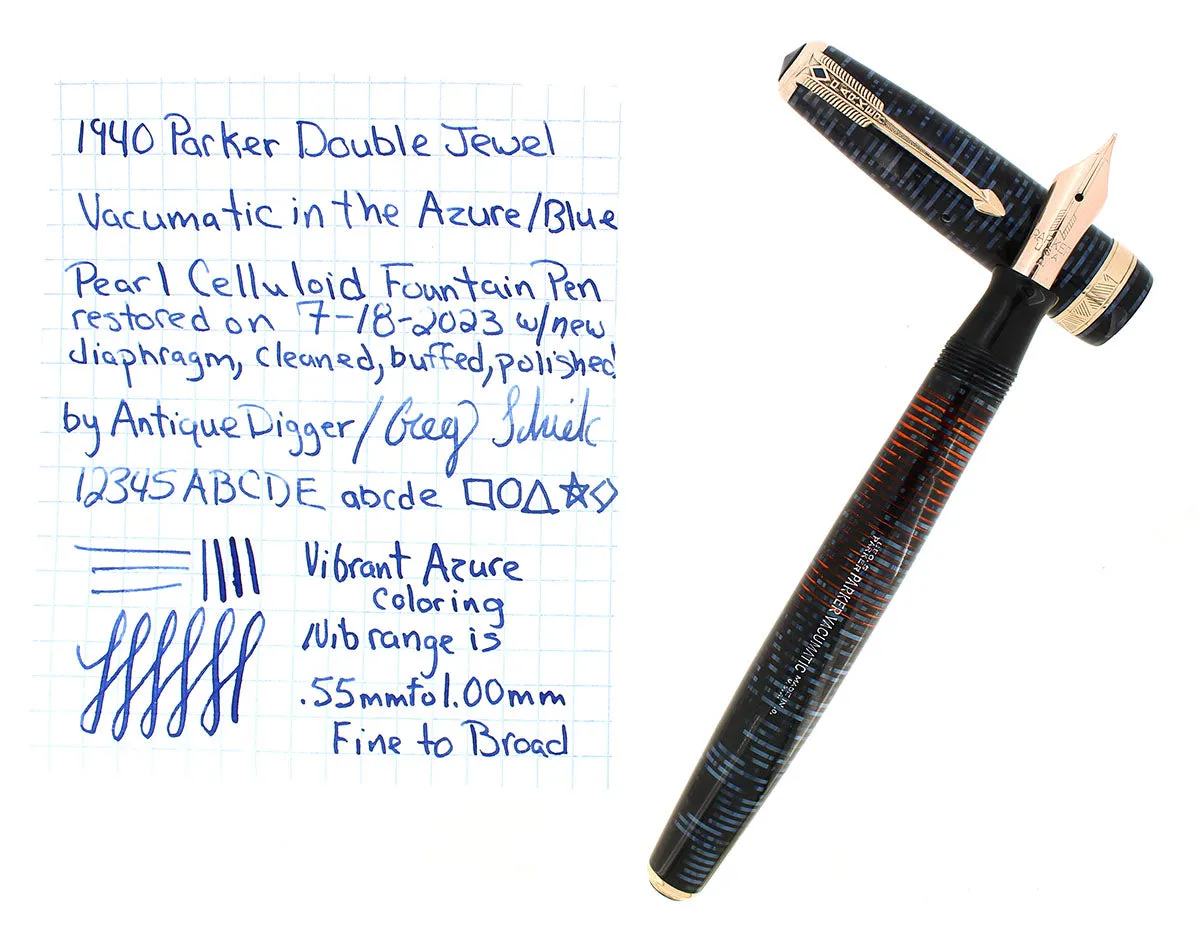 1940 Parker Double Jewel
Vacumatic in the Azure/Blue
Pearl Celluloid Fountain Pen
restored on 7-18-2023 w/new
diaphragm, cleaned, buffed, polished
by Antique Digger/Greg
12345 ABCDE abcde
Vibrant Azure
Coloring
Nib range is
.55mm to 1.00mm
Fine to Broad
PARKER
PARKER VACUMATIC
MADE IN U.S.A.